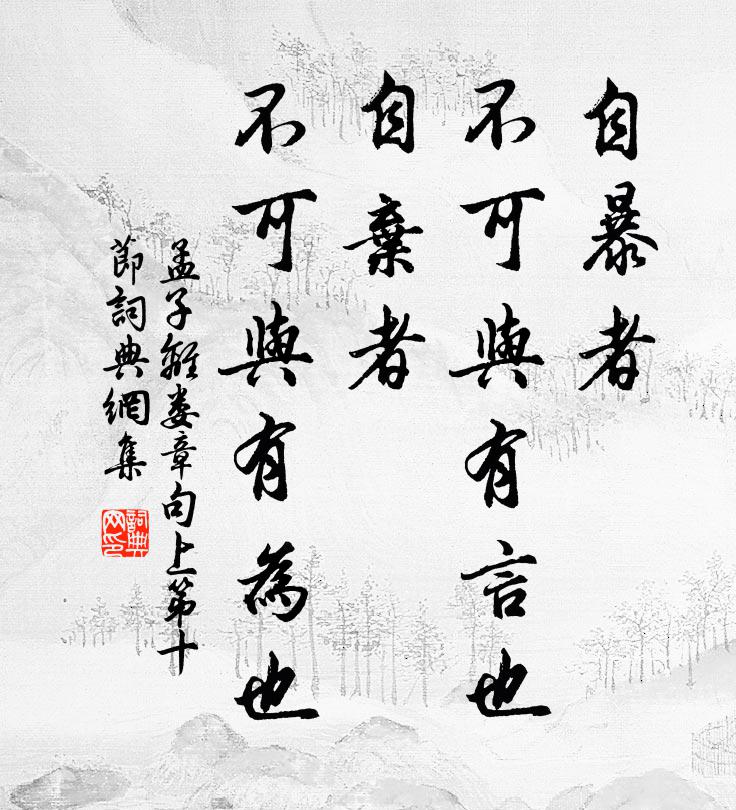 自暴者
不可與有言也
自棄者
不可與有為也
孟子離娄章句上第十
節詞典網集
詞典網印